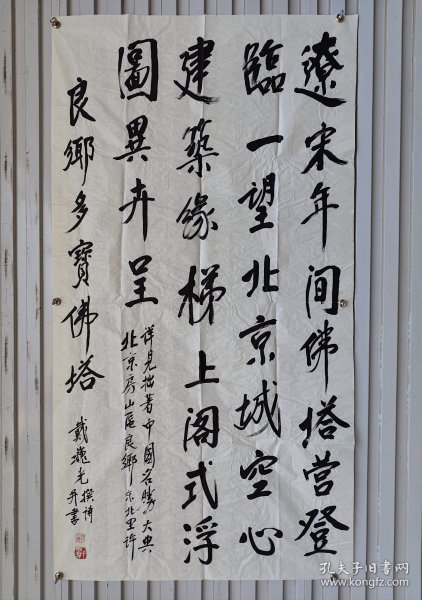 遼宋年间佛塔营登
臨一望北京城空心
建築缘梯上阁式浮
圖異卉呈
详見拙著中國名勝大典
北京房山區良鄉东北里许
良鄉多寶佛塔
戴逸光撰诗
并書
孔夫子旧書网
www.kongfz.com